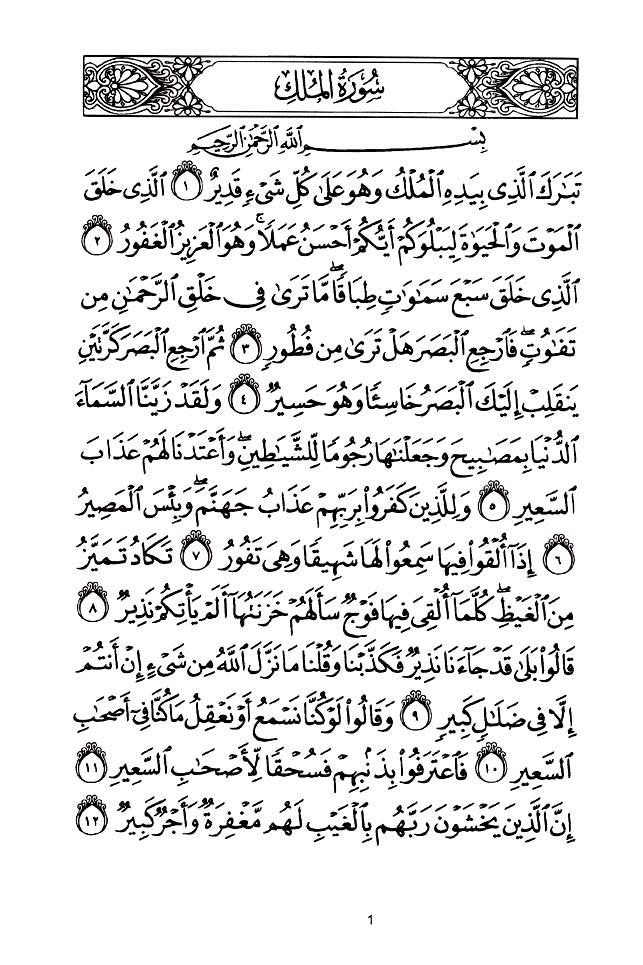 سُورَةُ المُلْكِ
بِسْمِ اللَّهِ الرَّحْمَٰنِ الرَّحِيمِ
تَبَارَكَ الَّذِي بِيَدِهِ الْمُلْكُ وَهُوَ عَلَىٰ كُلِّ شَيْءٍ قَدِيرٌ ١ الَّذِي خَلَقَ
الْمَوْتَ وَالْحَيَاةَ لِيَبْلُوَكُمْ أَيُّكُمْ أَحْسَنُ عَمَلًا ۚ وَهُوَ الْعَزِيزُ الْغَفُورُ ٢
الَّذِي خَلَقَ سَبْعَ سَمَاوَاتٍ طِبَاقًا ۖ مَّا تَرَىٰ فِي خَلْقِ الرَّحْمَٰنِ مِن
تَفَاوُتٍ ۖ فَارْجِعِ الْبَصَرَ هَلْ تَرَىٰ مِن فُطُورٍ ٣ ثُمَّ ارْجِعِ الْبَصَرَ كَرَّتَيْنِ
يَنقَلِبْ إِلَيْكَ الْبَصَرُ خَاسِئًا وَهُوَ حَسِيرٌ ٤ وَلَقَدْ زَيَّنَّا السَّمَاءَ
الدُّنْيَا بِمَصَابِيحَ وَجَعَلْنَاهَا رُجُومًا لِّلشَّيَاطِينِ ۖ وَأَعْتَدْنَا لَهُمْ عَذَابَ
السَّعِيرِ ٥ وَلِلَّذِينَ كَفَرُوا بِرَبِّهِمْ عَذَابُ جَهَنَّمَ ۖ وَبِئْسَ الْمَصِيرُ
٦ إِذَا أُلْقُوا فِيهَا سَمِعُوا لَهَا شَهِيقًا وَهِيَ تَفُورُ ٧ تَكَادُ تَمَيَّزُ
مِنَ الْغَيْظِ ۖ كُلَّمَا أُلْقِيَ فِيهَا فَوْجٌ سَأَلَهُمْ خَزَنَتُهَا أَلَمْ يَأْتِكُمْ نَذِيرٌ ٨
قَالُوا بَلَىٰ قَدْ جَاءَنَا نَذِيرٌ فَكَذَّبْنَا وَقُلْنَا مَا نَزَّلَ اللَّهُ مِن شَيْءٍ إِنْ أَنتُمْ
إِلَّا فِي ضَلَالٍ كَبِيرٍ ٩ وَقَالُوا لَوْ كُنَّا نَسْمَعُ أَوْ نَعْقِلُ مَا كُنَّا فِي أَصْحَابِ
السَّعِيرِ ١٠ فَاعْتَرَفُوا بِذَنبِهِمْ فَسُحْقًا لِّأَصْحَابِ السَّعِيرِ ١١
إِنَّ الَّذِينَ يَخْشَوْنَ رَبَّهُم بِالْغَيْبِ لَهُم مَّغْفِرَةٌ وَأَجْرٌ كَبِيرٌ ١٢
1